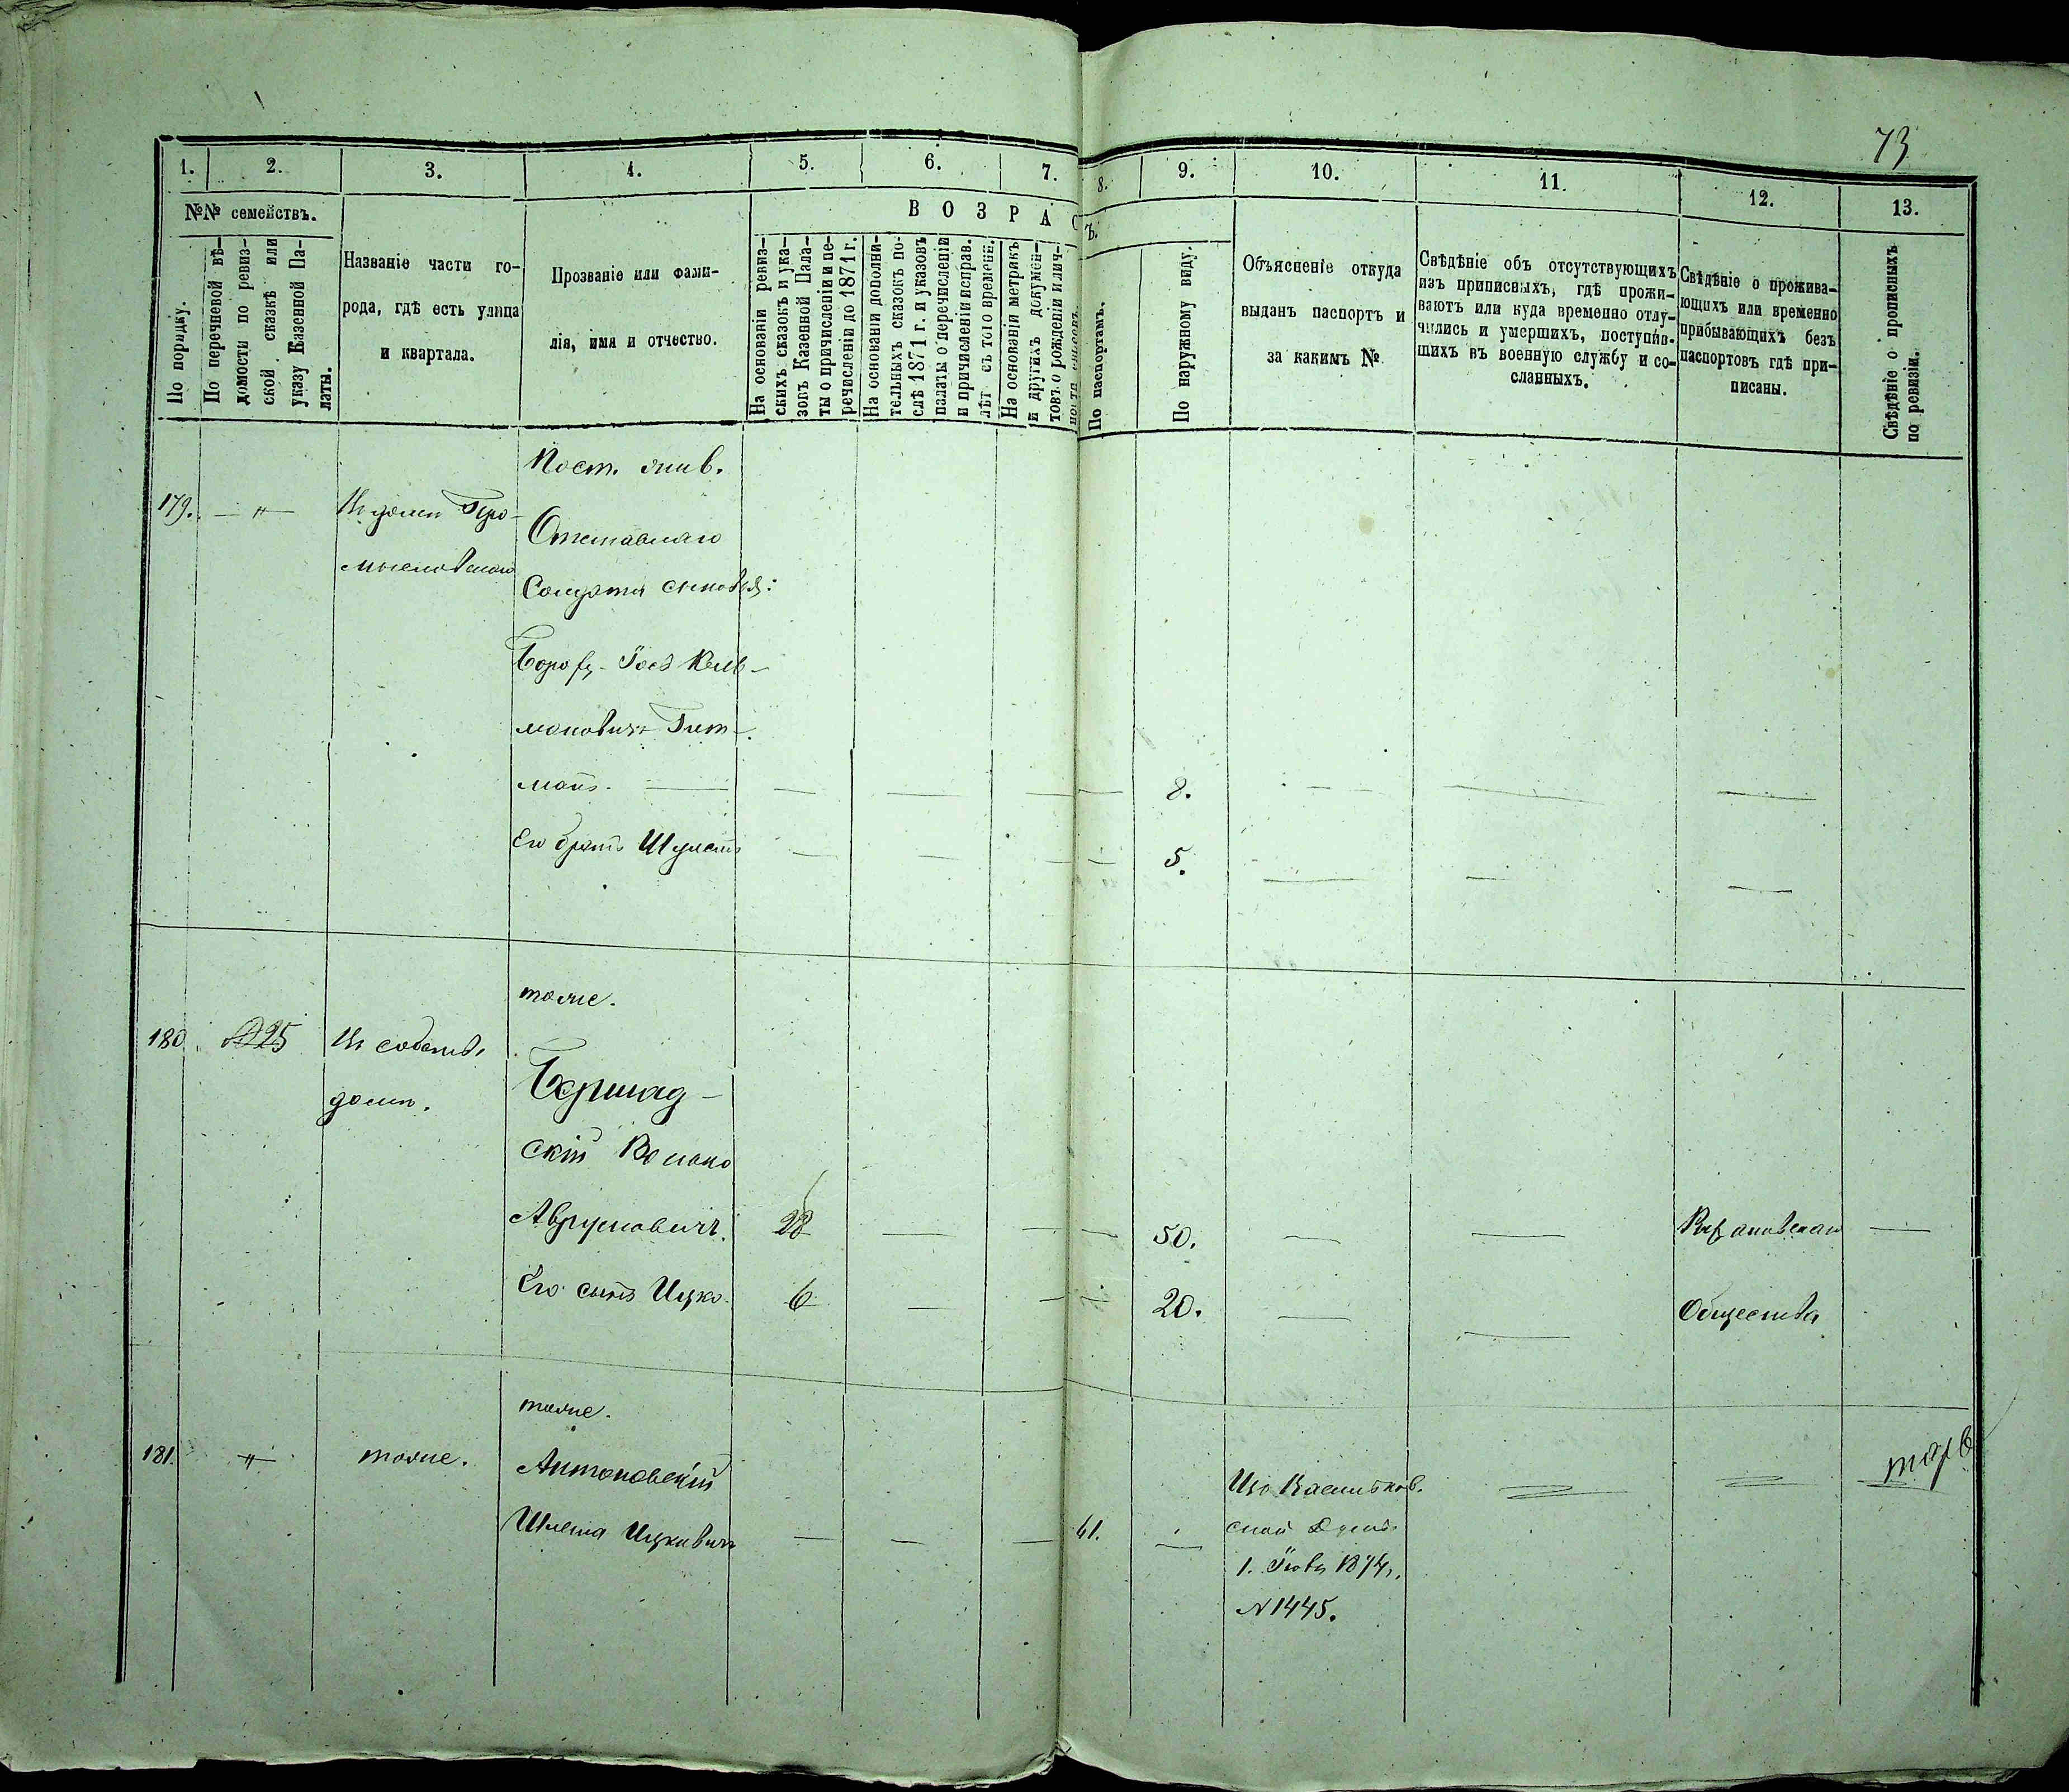 73
1. 2. 3. 4. 5. 6. 7. 8. 9. 10. 11. 12. 13.
№№ семействъ.
По порядку.
По перечневой вѣ-
домости по ревиз-
ской сказкѣ или
указу Казенной Па-
латы.
Названіе части го-
рода, гдѣ есть улица
и квартала.
Прозваніе или фами-
лія, имя и отчество.
ВОЗРАСТЪ.
На основаніи ревиз-
скихъ сказокъ и ука-
зовъ Казенной Пала-
ты о причисленіи и пе-
речисленіи до 1871 г.
На основаніи дополни-
тельныхъ сказокъ по-
слѣ 1871 г. и указовъ
палаты о перечисленіи
и причисленіи исправ.
лѣт съ того времени.
На основаніи метрикъ
и другихъ докумен-
товъ о рожденіи и лич-
По паспортамъ.
По наружному виду.
Объясненіе откуда
выданъ паспортъ и
за какимъ №.
Свѣдѣніе объ отсутствующихъ
изъ приписныхъ, гдѣ прожи-
ваютъ или куда временно отлу-
чились и умершихъ, поступив-
шихъ въ военную службу и со-
сланныхъ.
Свѣдѣніе о прожива-
ющихъ или временно
прибывающихъ безъ
паспортовъ гдѣ при-
писаны.
Свѣдѣніе о прописныхъ
по ревизіи.
Пост. жив.
179. — " — Въ домѣ
Отставнаго
Солдата сыновья:
Госъ Кель-
мановичъ Гит-
манъ. — — — — — 8. — — —
Его братъ — — — — 5. — — —
тоже.
180. №25 Въ собств.
домѣ.
Бершад-
скій Волько
Аврумовичъ. 28 — — — 50. — — —
Его сынъ Ицко. 6 — — — 20. — — Общества
тоже.
181. — " — тоже. Антоновскій
Шлема Ицковичъ — — — 61. —
Изъ Васильков.
ской Думы
1. 1874 г.
№ 1445.